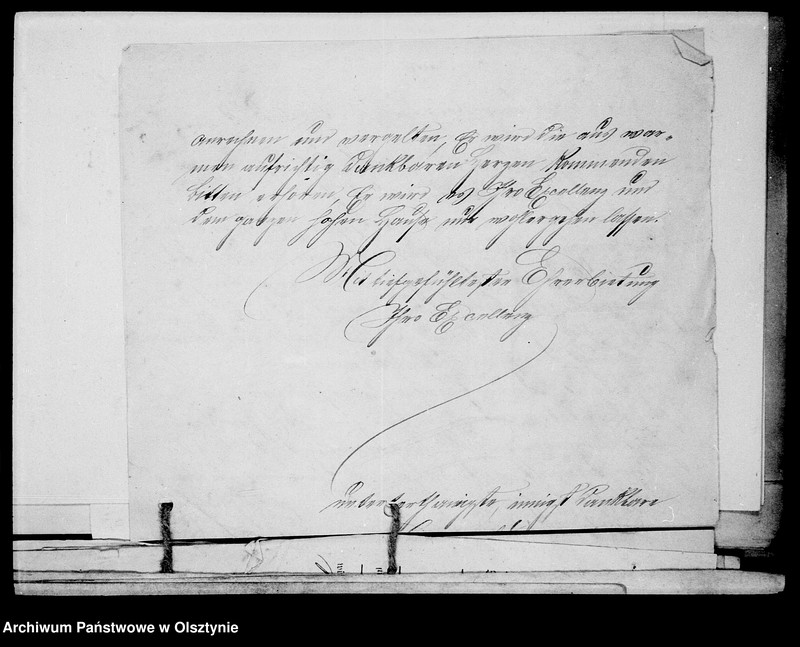 anrechnen und vergelten, Er wird die aus war-
men aufrichtig dankbaren Herzen kommenden
Bitten erhören, Er wird es Ihro Excellenz und
dem ganzen hohen Hause nur wohlergehen lassen.
Mit tiefgefühltester Ehrerbietung
Ihro Excellenz
unterthänigste, innigst dankbare
Archiwum Państwowe w Olsztynie